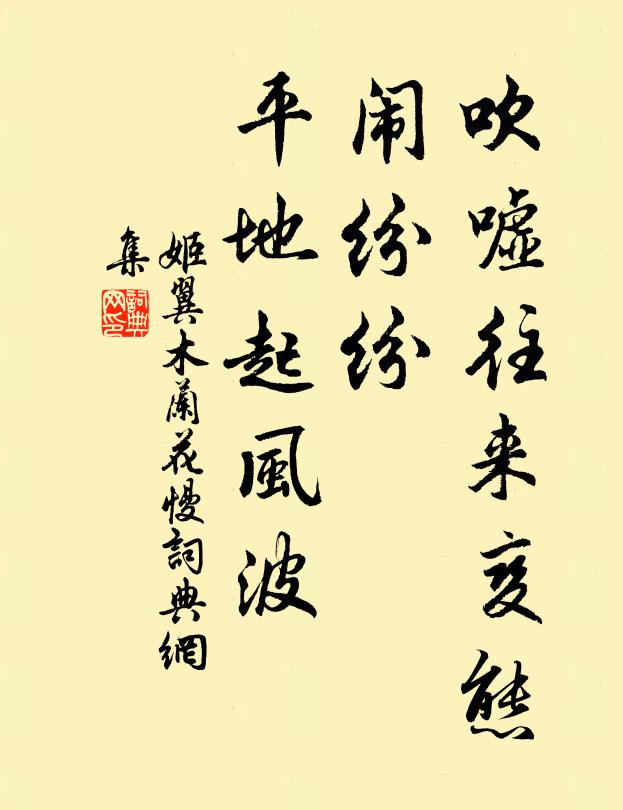 吹嘘往来变態
闹纷纷
平地起風波
姬翼木蘭花慢詞典網
集
詞典网印